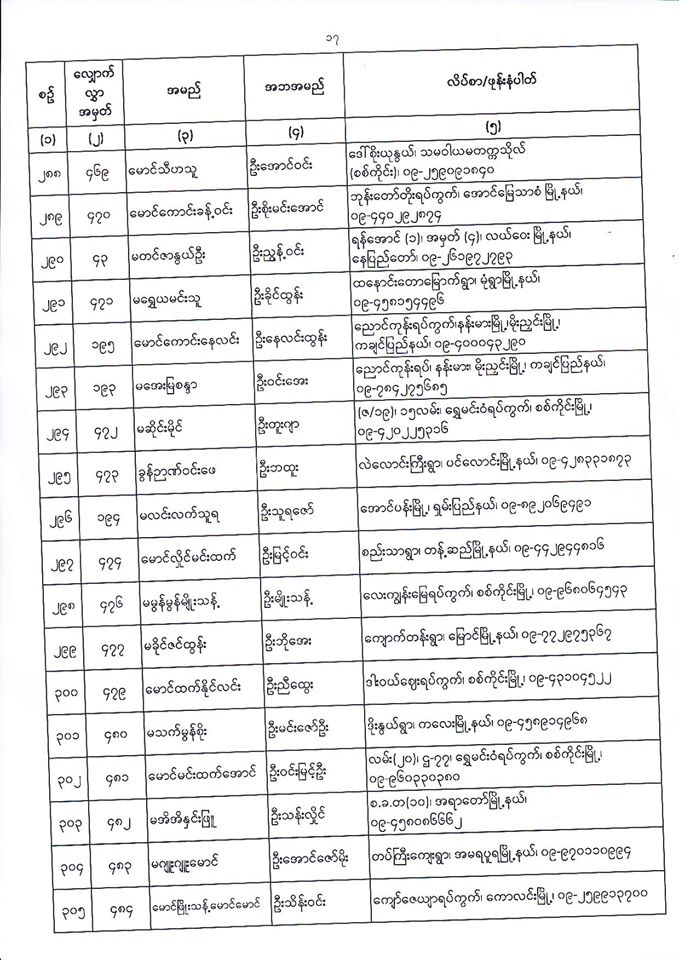 ၁၇
စဉ် လျှောက်လွှာအမှတ် အမည် အဘအမည် လိပ်စာ/ဖုန်းနံပါတ်
(၁) (၂) (၃) (၄) (၅)
၂၈၈ ၄၆၉ မောင်သီဟသူ ဦးအောင်ဝင်း ဒေါ်စိုးယုနွယ်၊ သမဝါယမတက္ကသိုလ်
(စစ်ကိုင်း)၊ ၀၉-၂၅၉၀၉၁၈၄၀
၂၈၉ ၄၇၀ မောင်ကောင်းခန့်ဝင်း ဦးစိုးမင်းအောင် ဘုန်းတော်တိုးရပ်ကွက်၊ အောင်မြေသာစံ မြို့နယ်၊
၀၉-၄၄၀၂၉၂၈၇၄
၂၉၀ ၄၃ မတင်ဇာနွယ်ဦး ဦးညွန့်ဝင်း ရန်အောင် (၁)၊ အမှတ် (၄)၊ လယ်ဝေး မြို့နယ်၊
နေပြည်တော်၊ ၀၉-၂၆၁၉၇၂၇၉၃
၂၉၁ ၄၇၁ မရွှေယမင်းသူ ဦးခိုင်ထွန်း ထနောင်းတောမြောက်ရွာ၊ မုံရွာမြို့နယ်၊
၀၉-၄၅၈၁၅၄၄၉၆
၂၉၂ ၁၉၅ မောင်ကောင်းနေလင်း ဦးနေလင်းထွန်း ညောင်ကုန်းရပ်ကွက်၊နန်းမားမြို့၊မိုးညှင်းမြို့၊
ကချင်ပြည်နယ်၊ ၀၉-၄၀၀၀၄၃၂၉၀
၂၉၃ ၁၉၃ မအေးမြစန္ဒာ ဦးဝင်းအေး ညောင်ကုန်းရပ်၊ နန်းမား၊ မိုးညှင်းမြို့၊ ကချင်ပြည်နယ်၊
၀၉-၇၈၄၂၇၅၆၈၅
၂၉၄ ၄၇၂ မဆိုင်းမိုင် ဦးတူးဂျာ (ဇ/၁၉)၊ ၁၅လမ်း၊ ရွှေမင်းဝံရပ်ကွက်၊ စစ်ကိုင်းမြို့၊
၀၉-၄၂၀၂၂၅၃၁၆
၂၉၅ ၄၇၃ ခွန်ဉာဏ်ဝင်းဖေ ဦးဘထူး လဲလောင်းကြီးရွာ၊ ပင်လောင်းမြို့နယ်၊ ၀၉-၄၂၈၃၃၁၈၇၃
၂၉၆ ၁၉၄ မလင်းလက်သူရ ဦးသူရဇော် အောင်ပန်းမြို့၊ ရှမ်းပြည်နယ်၊ ၀၉-၈၉၂၀၆၉၄၉၁
၂၉၇ ၄၇၄ မောင်လှိုင်မင်းထက် ဦးမြင့်ဝင်း စည်းသာရွာ၊ တန့်ဆည်မြို့နယ်၊ ၀၉-၄၄၂၉၄၄၈၁၆
၂၉၈ ၄၇၆ မမွန်မွန်မျိုးသန့် ဦးမျိုးသန့် လေးကျွန်းမြေရပ်ကွက်၊ စစ်ကိုင်းမြို့၊ ၀၉-၉၆၈၀၆၄၅၄၃
၂၉၉ ၄၇၇ မခိုင်ဇင်ထွန်း ဦးဘိုအေး ကျောက်တန်းရွာ၊ မြောင်မြို့နယ်၊ ၀၉-၇၇၂၉၇၅၃၆၇
၃၀၀ ၄၇၉ မောင်ထက်နိုင်လင်း ဦးညီထွေး ဒါးဝယ်ဈေးရပ်ကွက်၊ စစ်ကိုင်းမြို့၊ ၀၉-၄၃၁၀၄၅၂၂
၃၀၁ ၄၈၀ မသက်မွန်စိုး ဦးမင်းဇော်ဦး ဒိုးနွယ်ရွာ၊ ကလေးမြို့နယ်၊ ၀၉-၄၅၈၉၁၄၉၆၈
၃၀၂ ၄၈၁ မောင်မင်းထက်အောင် ဦးဝင်းမြင့်ဦး လမ်း(၂၀)၊ ဌ-၇၇၊ ရွှေမင်းဝံရပ်ကွက်၊ စစ်ကိုင်းမြို့၊
၀၉-၉၆၀၃၃၀၃၈၀
၃၀၃ ၄၈၂ မအိအိနှင်းဖြူ ဦးသန်းလှိုင် စ.ခ.တ(၁၀)၊ အရာတော်မြို့နယ်၊
၀၉-၄၅၈၀၈၆၆၆၂
၃၀၄ ၄၈၃ မဂျူးဂျူးမောင် ဦးအောင်ဇော်မိုး တပ်ကြီးကျေးရွာ၊ အမရပူရမြို့နယ်၊ ၀၉-၉၇၀၁၁၀၉၉၄
၃၀၅ ၄၈၄ မောင်ဖြိုးသန့်မောင်မောင် ဦးသိန်းဝင်း ကျော်ဇေယျာရပ်ကွက်၊ ကောလင်းမြို့၊ ၀၉-၂၅၉၉၁၃၇၀၀